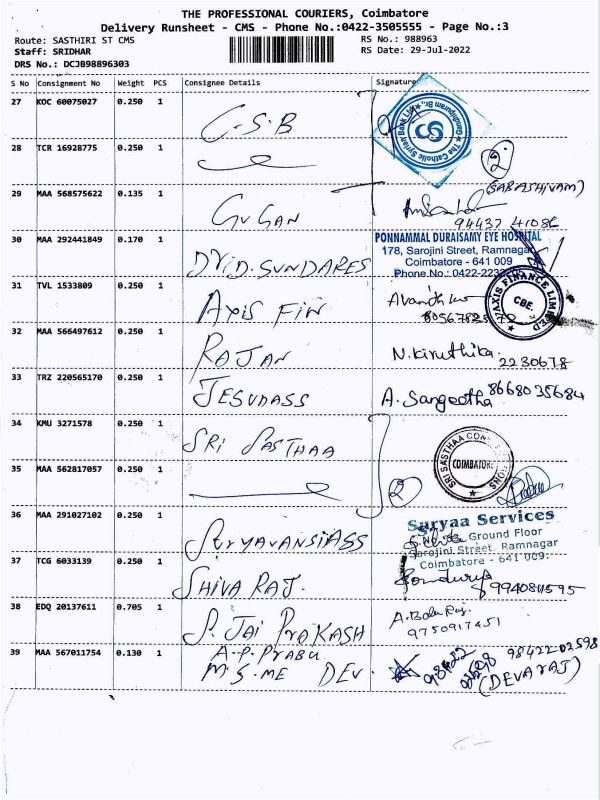 THE PROFESSIONAL COURIERS, Coimbatore
Delivery Runsheet - CMS - Phone No.:0422-3505555 - Page No.:3
Route: SASTHIRI ST CMS
RS No.: 988963
Staff: SRIDHAR
RS Date: 29-Jul-2022
DRS No.: DCJB98896303
S No Consignment No Weight PCS Consignee Details Signature
27 KOC 60075027 0.250 1 C.S.B
The Catholic Syrian Bank Ltd.
28 TCR 16928775 0.250 1
2
(SABASHIVAM)
29 MAA 568575622 0.135 1 GUGAN
94437 41086
30 MAA 292441849 0.170 1 DR.D.SUNDARES
PONNAMMAL DURAISAMY EYE HOSPITAL
178, Sarojini Street, Ramnagar
Coimbatore - 641 009
Phone No.: 0422-2232
31 TVL 1533809 0.250 1 AXIS FIN
AXIS FINANCE LIMITED
CBE.
32 MAA 566497612 0.250 1 RAJAN N.Kiruthika. 2230678
33 TRZ 220565170 0.250 1 JESUDASS A. Sangeetha 8668035684
34 KMU 3271578 0.250 1 SRI SASTHAA
SRI SASTHAA
COIMBATORE
35 MAA 562817057 0.250 1
2
36 MAA 291027102 0.250 1 SURYAVANSIASS
Suryaa Services
Ground Floor
Sarojini Street, Ramnagar
Coimbatore - 641 009.
37 TCG 6033139 0.250 1 SHIVA RAJ.
9940811595
38 EDQ 20137611 0.705 1 P. JAI PRAKASH
A. Balu Raj.
9750917451
39 MAA 567011754 0.130 1 A.P.PRABU
M.S.ME DEV.
98422 02598
98422-02598
(DEVARAJ)